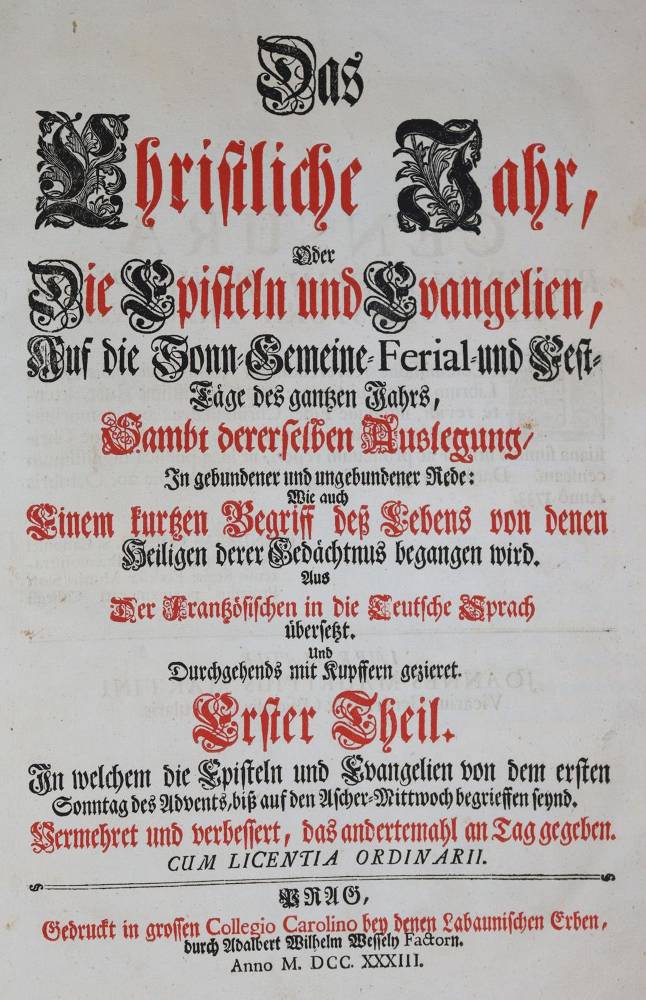 Das
Christliche Jahr,
Oder
Die Episteln und Evangelien,
Auf die Sonn-Gemeine-Ferial-und Fest-
Täge des gantzen Jahrs,
Sambt dererselben Auslegung/
In gebundener und ungebundener Rede:
Wie auch
Einem kurtzen Begriff deß Lebens von denen
Heiligen derer Gedächtnus begangen wird.
Aus
Der Frantzösischen in die Teutsche Sprach
übersetzt.
Und
Durchgehends mit Kupffern gezieret.
Erster Theil.
In welchem die Episteln und Evangelien von dem ersten
Sonntag des Advents, biß auf den Ascher-Mittwoch begrieffen seynd.
Vermehret und verbessert, das andertemahl an Tag gegeben.
CUM LICENTIA ORDINARII.
PRAG,
Gedruckt in grossen Collegio Carolino bey denen Labaunischen Erben,
durch Adalbert Wilhelm Wessely Factorn.
Anno M. DCC. XXXIII.